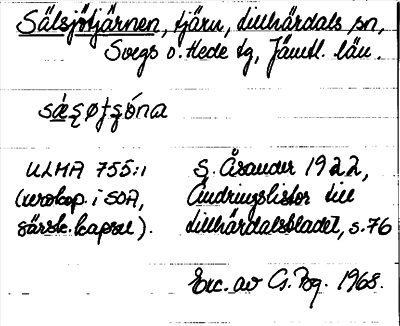 Sälsjötjärnen, tjärn, Lillhärdals sn,
Svegs o. Hede tg, Jämtl. län.
ULMA 755:1
(xerokop. i SOA,
särsk. kapsel).
S. Åsander 1922,
Ändringslistor till
Lillhärdalsbladet, s. 76
Exc. av Cs. Bg. 1968.